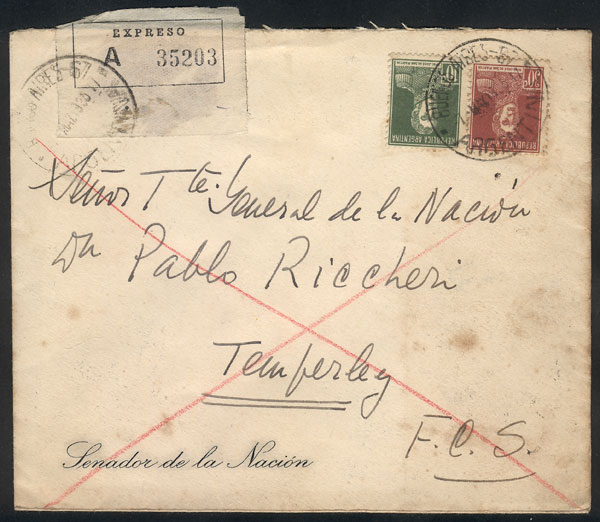 EXPRESO
A 35203
REPUBLICA ARGENTINA
REPUBLICA ARGENTINA
BUENOS AIRES-67
AIRES-67
Señor Tte. General de la Nación
Dn Pablo Riccheri
Temperley
F.C.S.
Senador de la Nación